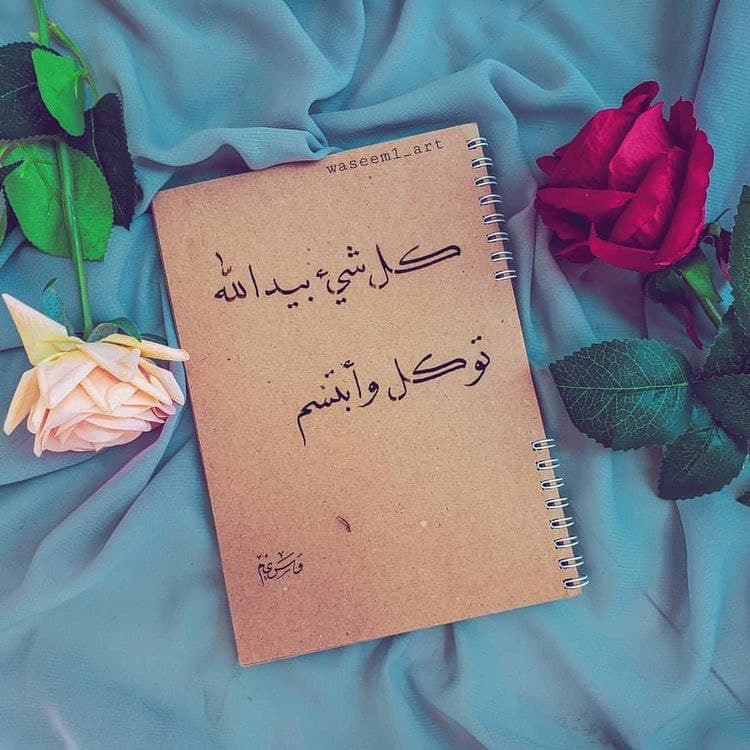 waseem1_art
كل شيء بيد الله
توكل وأبتسم